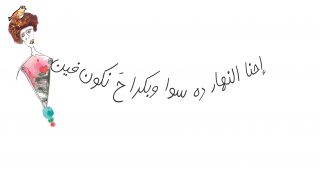 إحنا النهار ده سوا وبكرا حَ نكون فين